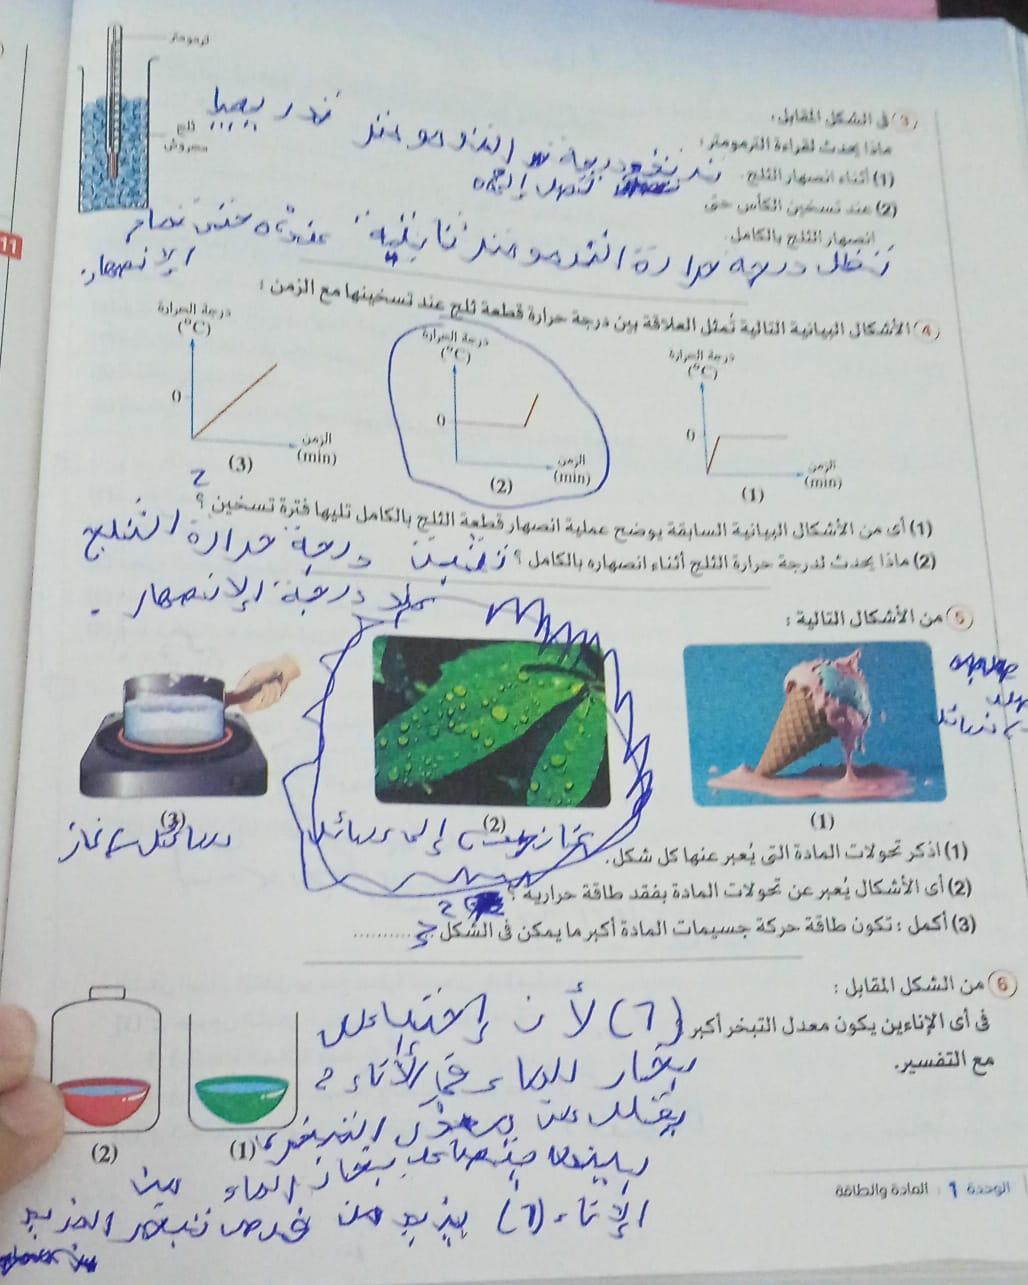 ترمومتر
ثلج
مجروش
3 في الشكل المقابل،
ماذا يحدث لقراءة الترمومتر :
(1) أثناء انصهار الثلج.
(2) عند تسخين الكأس حتى
انصهار الثلج بالكامل.
تدريجيا
تظل درجة حرارة الترمومتر ثابتة عند ه حتى تمام
الإنصهار.
4 الأشكال البيانية التالية تُمثل العلاقة بين درجة حرارة قطعة ثلج عند تسخينها مع الزمن :
درجة الحرارة
(°C)
0
الزمن
(min)
(1)
درجة الحرارة
(°C)
0
الزمن
(min)
(2)
درجة الحرارة
(°C)
0
الزمن
(min)
(3)
(1) أي من الأشكال البيانية السابقة يوضح عملية انصهار قطعة الثلج بالكامل تليها فترة تسخين ؟ 2
(2) ماذا يحدث لدرجة حرارة الثلج أثناء انصهاره بالكامل ؟ تثبت درجة حرارة الثلج
درجة الإنصهار.
5 من الأشكال التالية :
(1)
(2)
(3)
غاز إلى سائل
(1) اذكر تحولات المادة التي يُعبر عنها كل شكل.
(2) أي الأشكال يُعبر عن تحولات المادة بفقد طاقة حرارية ؟ 2
(3) أكمل : تكون طاقة حركة جسيمات المادة أكبر ما يمكن في الشكل ..........
6 من الشكل المقابل :
في أي الإناءين يكون معدل التبخر أكبر ؟ (1) لأن إحتباس
مع التفسير.
بخار الماء في الأناء 2
يقلل من معدل التبخر،
بينما يتصاعد بخار الماء من
الإناء (1) يزيد من فرص تبخر المزيد
(1)
(2)
الوحدة 1 : المادة والطاقة
11